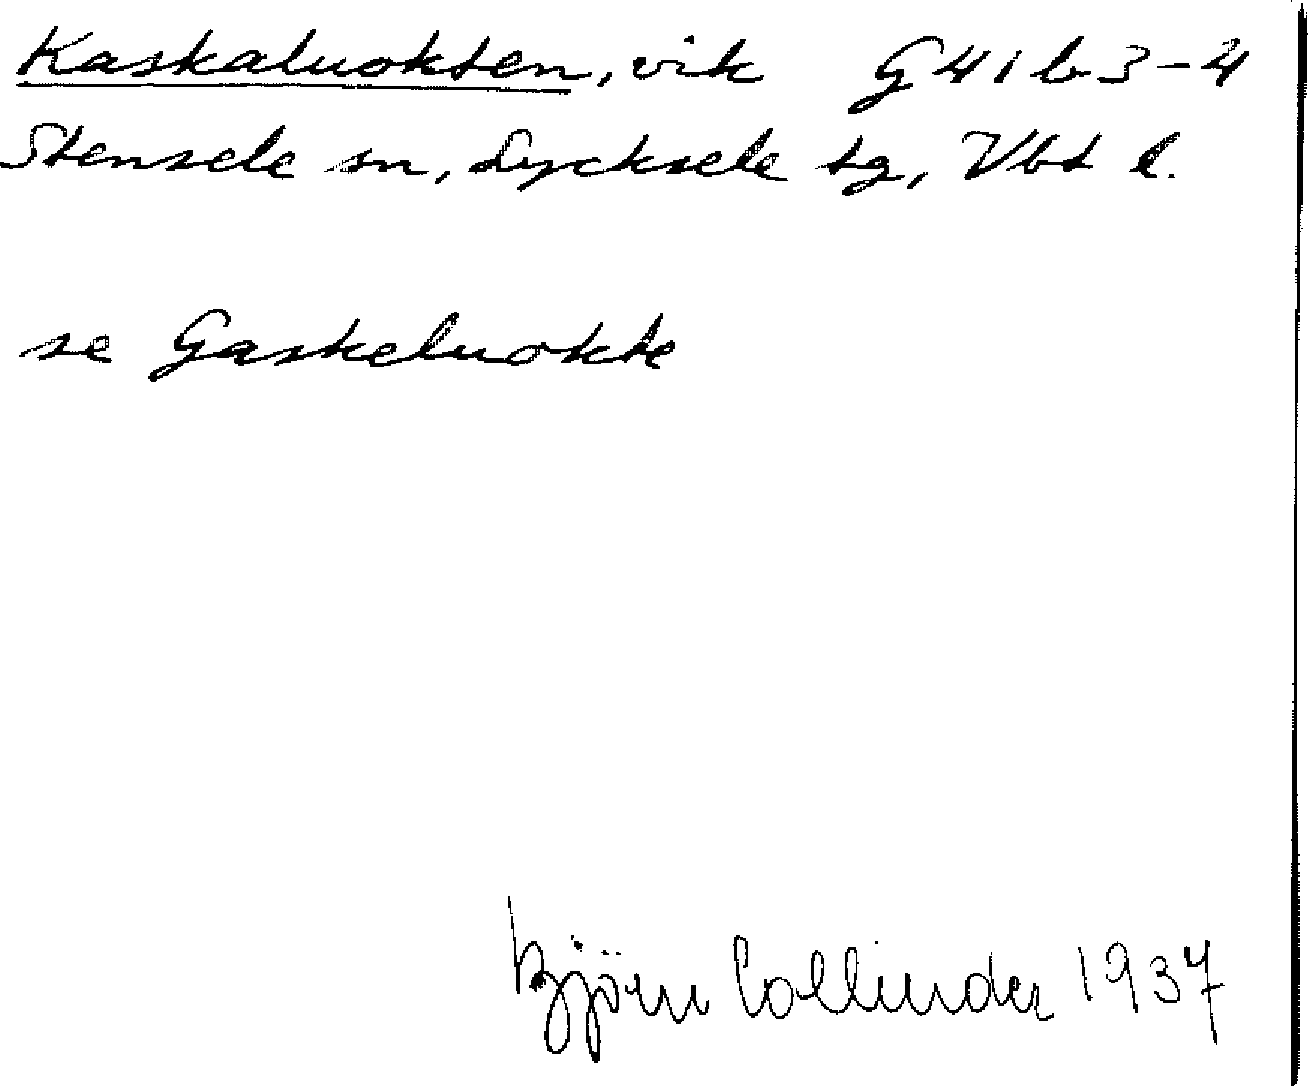 Kaskaluokten, vik G41b3-4
Stensele sn, Lycksele tg, Vbt l.
se Gaskeluokte
Björn Collinder 1937